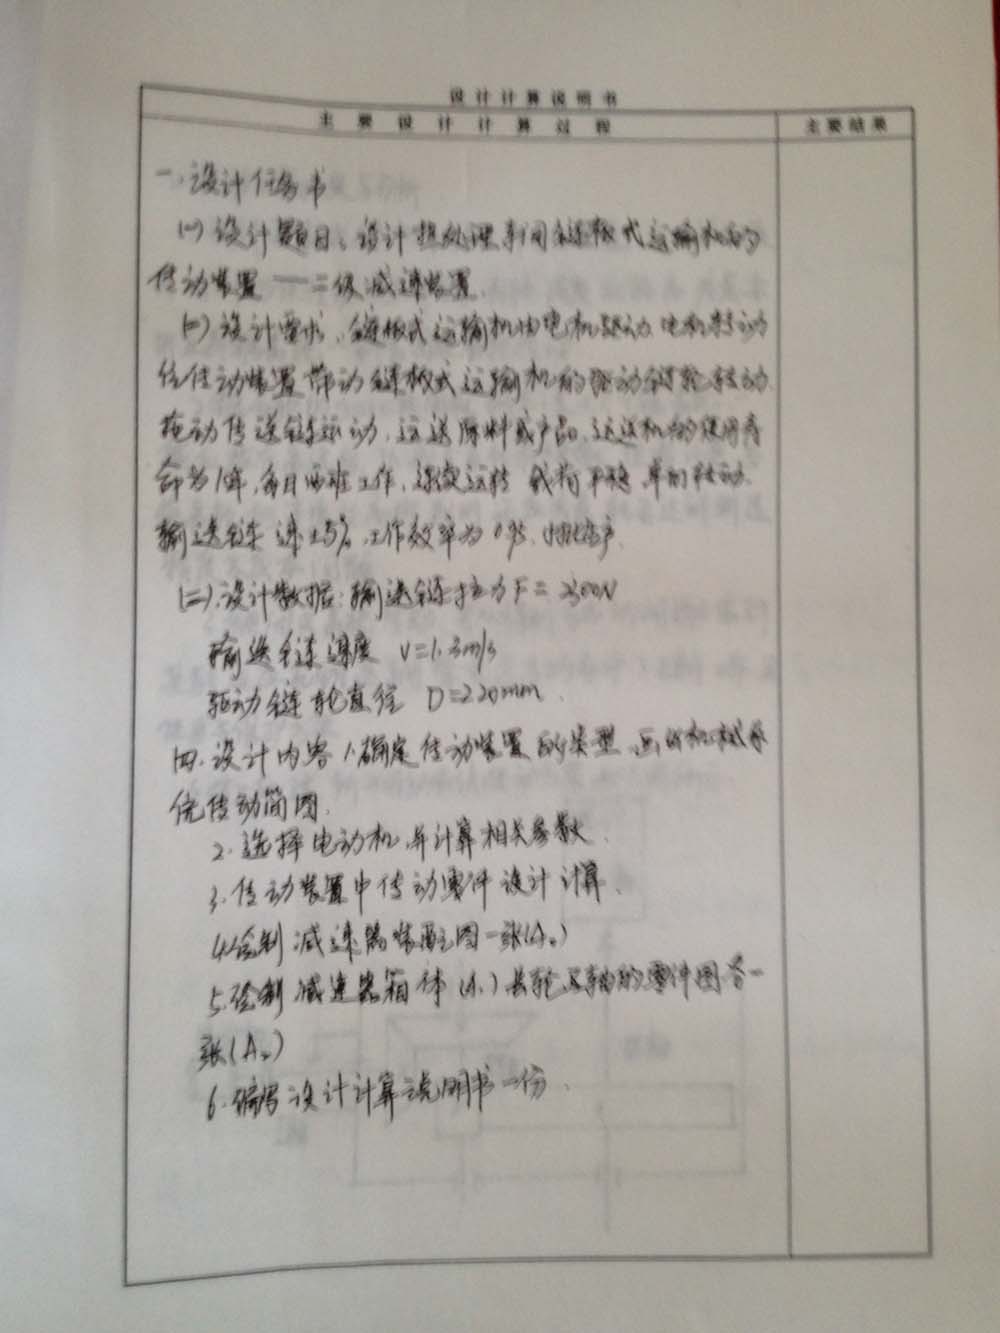 设计计算说明书
主要设计计算过程 主要结果
一、设计任务书
(一)设计题目:设计热处理车间链板式运输机的
传动装置——二级减速装置.
(二)设计要求:链板式运输机由电机驱动.电机转动
经传动装置带动链板式运输机的驱动链轮转动.
拖动传送链运动,运送原料或产品.运送机的使用寿
命为 年,每日两班工作,连续运转 载荷平稳 单向转动.
输送链速±5%,工作效率为0.95. 生产.
(三).设计数据:输送链拉力F= N
输送链速度 V=1.3m/s
驱动链轮直径 D=220mm.
四.设计内容 1.确定传动装置的类型,画出机械系
统传动简图.
2.选择电动机,并计算相关参数.
3.传动装置中传动零件设计计算.
4.绘制减速器装配图一张(A0)
5.绘制减速器箱体(A1)齿轮及轴的零件图各一
张(A2)
6.编写设计计算说明书一份.